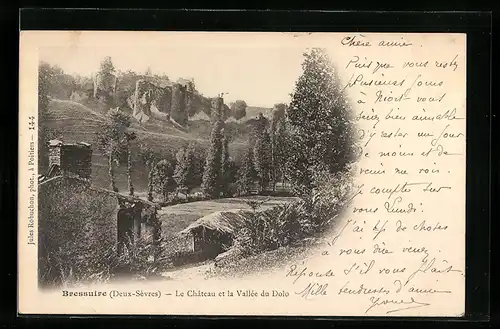 Chère amie,
Puisque vous restez
plusieurs jours
à Niort vous
seriez bien aimable
d'y rester un jour
de moins et de
venir me voir.
Je compte sur
vous Lundi.
J'ai bp de choses
à vous dire venez.
Réponse s'il vous plait
Mille tendresses d'amie
Yvonne
Jules Robuchon, phot., à Poitiers — 144
Bressuire (Deux-Sèvres) — Le Château et la Vallée du Dolo